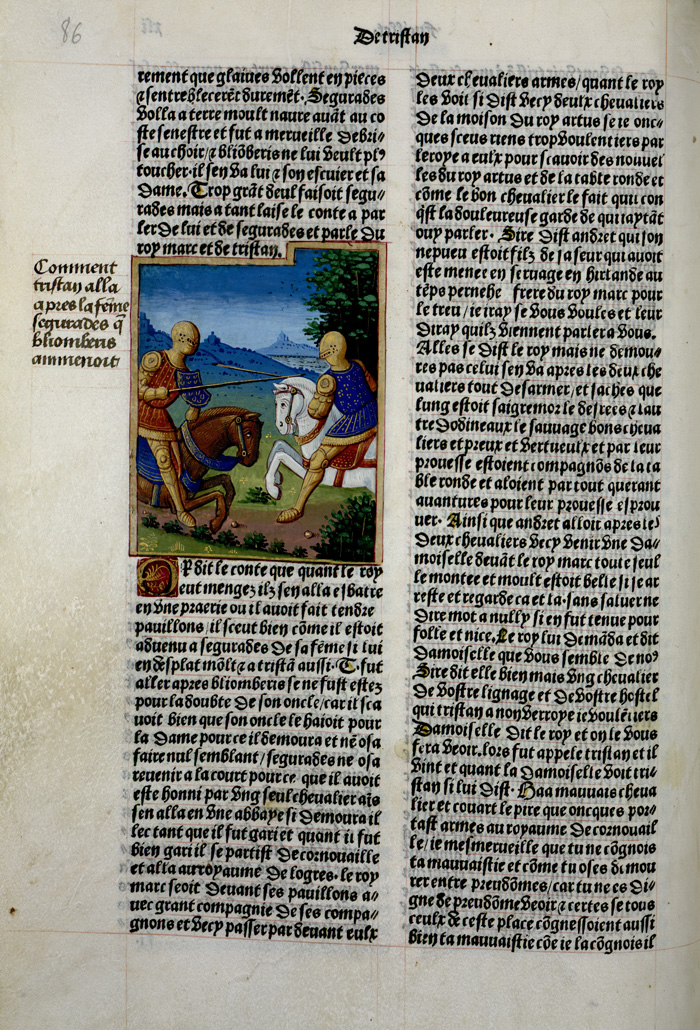 86
De tristan
rement que glaiues vollent en pieces
⁊ sentreblecerẽt duremẽt. Segurades
volla a terre moult naure auãt au co
ste senestre et fut a merueille debri⸗
se au choir/⁊ bliõberis ne lui veult plꝰ
toucher. il sen va lui ⁊ son escuier et sa
dame. Trop grãt deul faisoit segu⸗
rades mais a tant laise le conte a par
ler de lui et de segurades et parle du
roy marc et de tristan.
Comment
tristan alla
apres la fẽme
segurades q̃
bliomberis
ammenoit
Or dit le conte que quant le roy
eut mengez ilz sen alla esbatre
en vne praerie ou il auoit fait tendre
pauillons/il sceut bien cõme il estoit
aduenu a segurades de sa fẽme si lui
en desplat mõlt ⁊ a tristã aussi. T. fut
aller apres bliomberis se ne fust estez
pour la doubte de son oncle/car il sca
uoit bien que son oncle le haioit pour
la dame pour ce il demoura et nẽ osa
faire nul semblant/segurades ne osa
reuenir a la court pour ce que il auoit
este honni par vng seul cheualier ais
sen alla en vne abbaye si demoura il
lec tant que il fut gari et quant il fut
bien gari il se partist de cornouaille
et alla au royaume de logres. le roy
marc seoit deuant ses pauillons a⸗
uec grant compagnie de ses compa⸗
gnons et vecy passer par deuant eulx
deux cheualiers armes/quant le roy
les voit si dist vecy deulx cheualiers
de la moison du roy artus se ie onc⸗
ques sceus riens trop voulentiers par
leroye a eulx pour scauoir des nouuel
les du roy artus et de la table ronde et
cõme le bon cheualier le fait qui con
q̃st la douleureuse garde de qui iay tãt
ouy parler. Sire dist andret qui son
nepueu estoit filz de sa seur qui auoit
este menee en seruage en hirlande au
tẽps pernehe frere du roy marc pour
le treu/ie iray se vous voules et leur
diray quilz viennent parler a vous.
Alles se dist le roy mais ne demou⸗
res pas celui sen va apres les deux che
ualiers tout desarmer/et saches que
lung estoit saigremor le desrees ⁊ lau
tre dodineaux le sauuage bons cheua
liers et preux et vertueulx et par leur
prouesse estoient compagnõs de la ta
ble ronde et aloient par tout querant
auantures pour leur prouesse esprou
uer. Ainsi que andret alloit apres les
deux cheualiers vecy venir vne da⸗
moiselle deuãt le roy marc toute seul
le montee et moult estoit belle si se ar
reste et regarde ca et la. sans saluer ne
dire mot a nully si en fut tenue pour
folle et nice. Le roy lui demãda et dit
damoiselle que vous semble de noꝰ
Sire dit elle bien mais vng cheualier
de vostre lignage et de vostre hostel
qui tristan a non verroye ie voulẽtiers
Damoiselle dit le roy et on le vous
fera veoir. lors fut appele tristan et il
vint et quant la damoiselle voit tri⸗
stan si lui dist. Haa mauuais cheua
lier et couart le pire que oncques por⸗
tast armes au royaume de cornouail
le/ie mesmerueille que tu ne cõgnois
ta mauuaistie et cõme tu oses dimou
rer entre preudõmes/car tu ne es di⸗
gne de preudõme veoir ⁊ certes se tous
ceulx de ceste place cõgnessoient aussi
bien ta mauuaistie cõe ie la cõgnois il